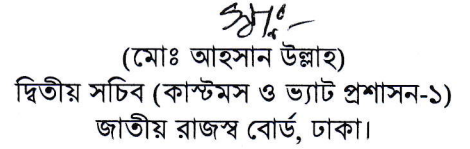 (মোঃ আহসান উল্লাহ)
দ্বিতীয় সচিব (কাস্টমস ও ভ্যাট প্রশাসন-১)
জাতীয় রাজস্ব বোর্ড, ঢাকা।